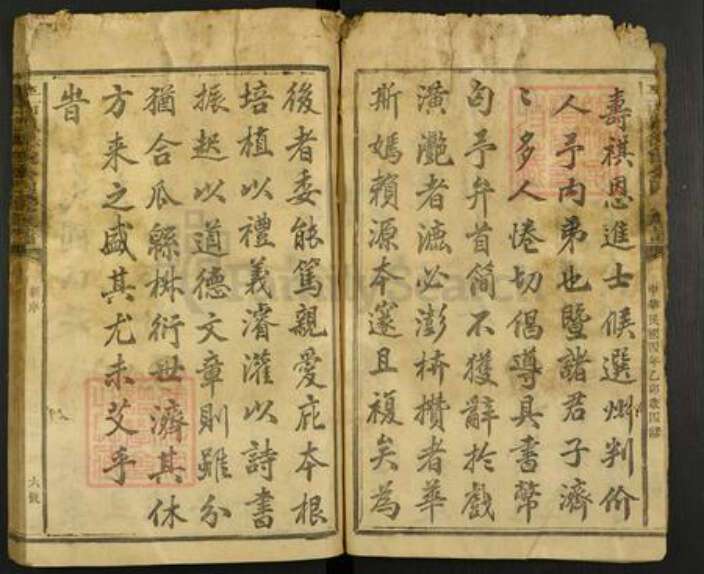 壽祺恩進士候選州判价
人予内弟也暨諸君子濟
〻多人惓切倡導具書幣
匄予弁首簡不獲辭於戲
潢灔者瀌必澎枿攢者華
斯嫣賴源本邃且複矣為
中華民國四年乙卯歲四修
後者委能篤親愛庇本根
培植以禮義濬灌以詩書
振起以道德文章則雖分
猶合瓜緜椒衍世濟其休
方来之盛其尤未艾乎
旹
新序
六號